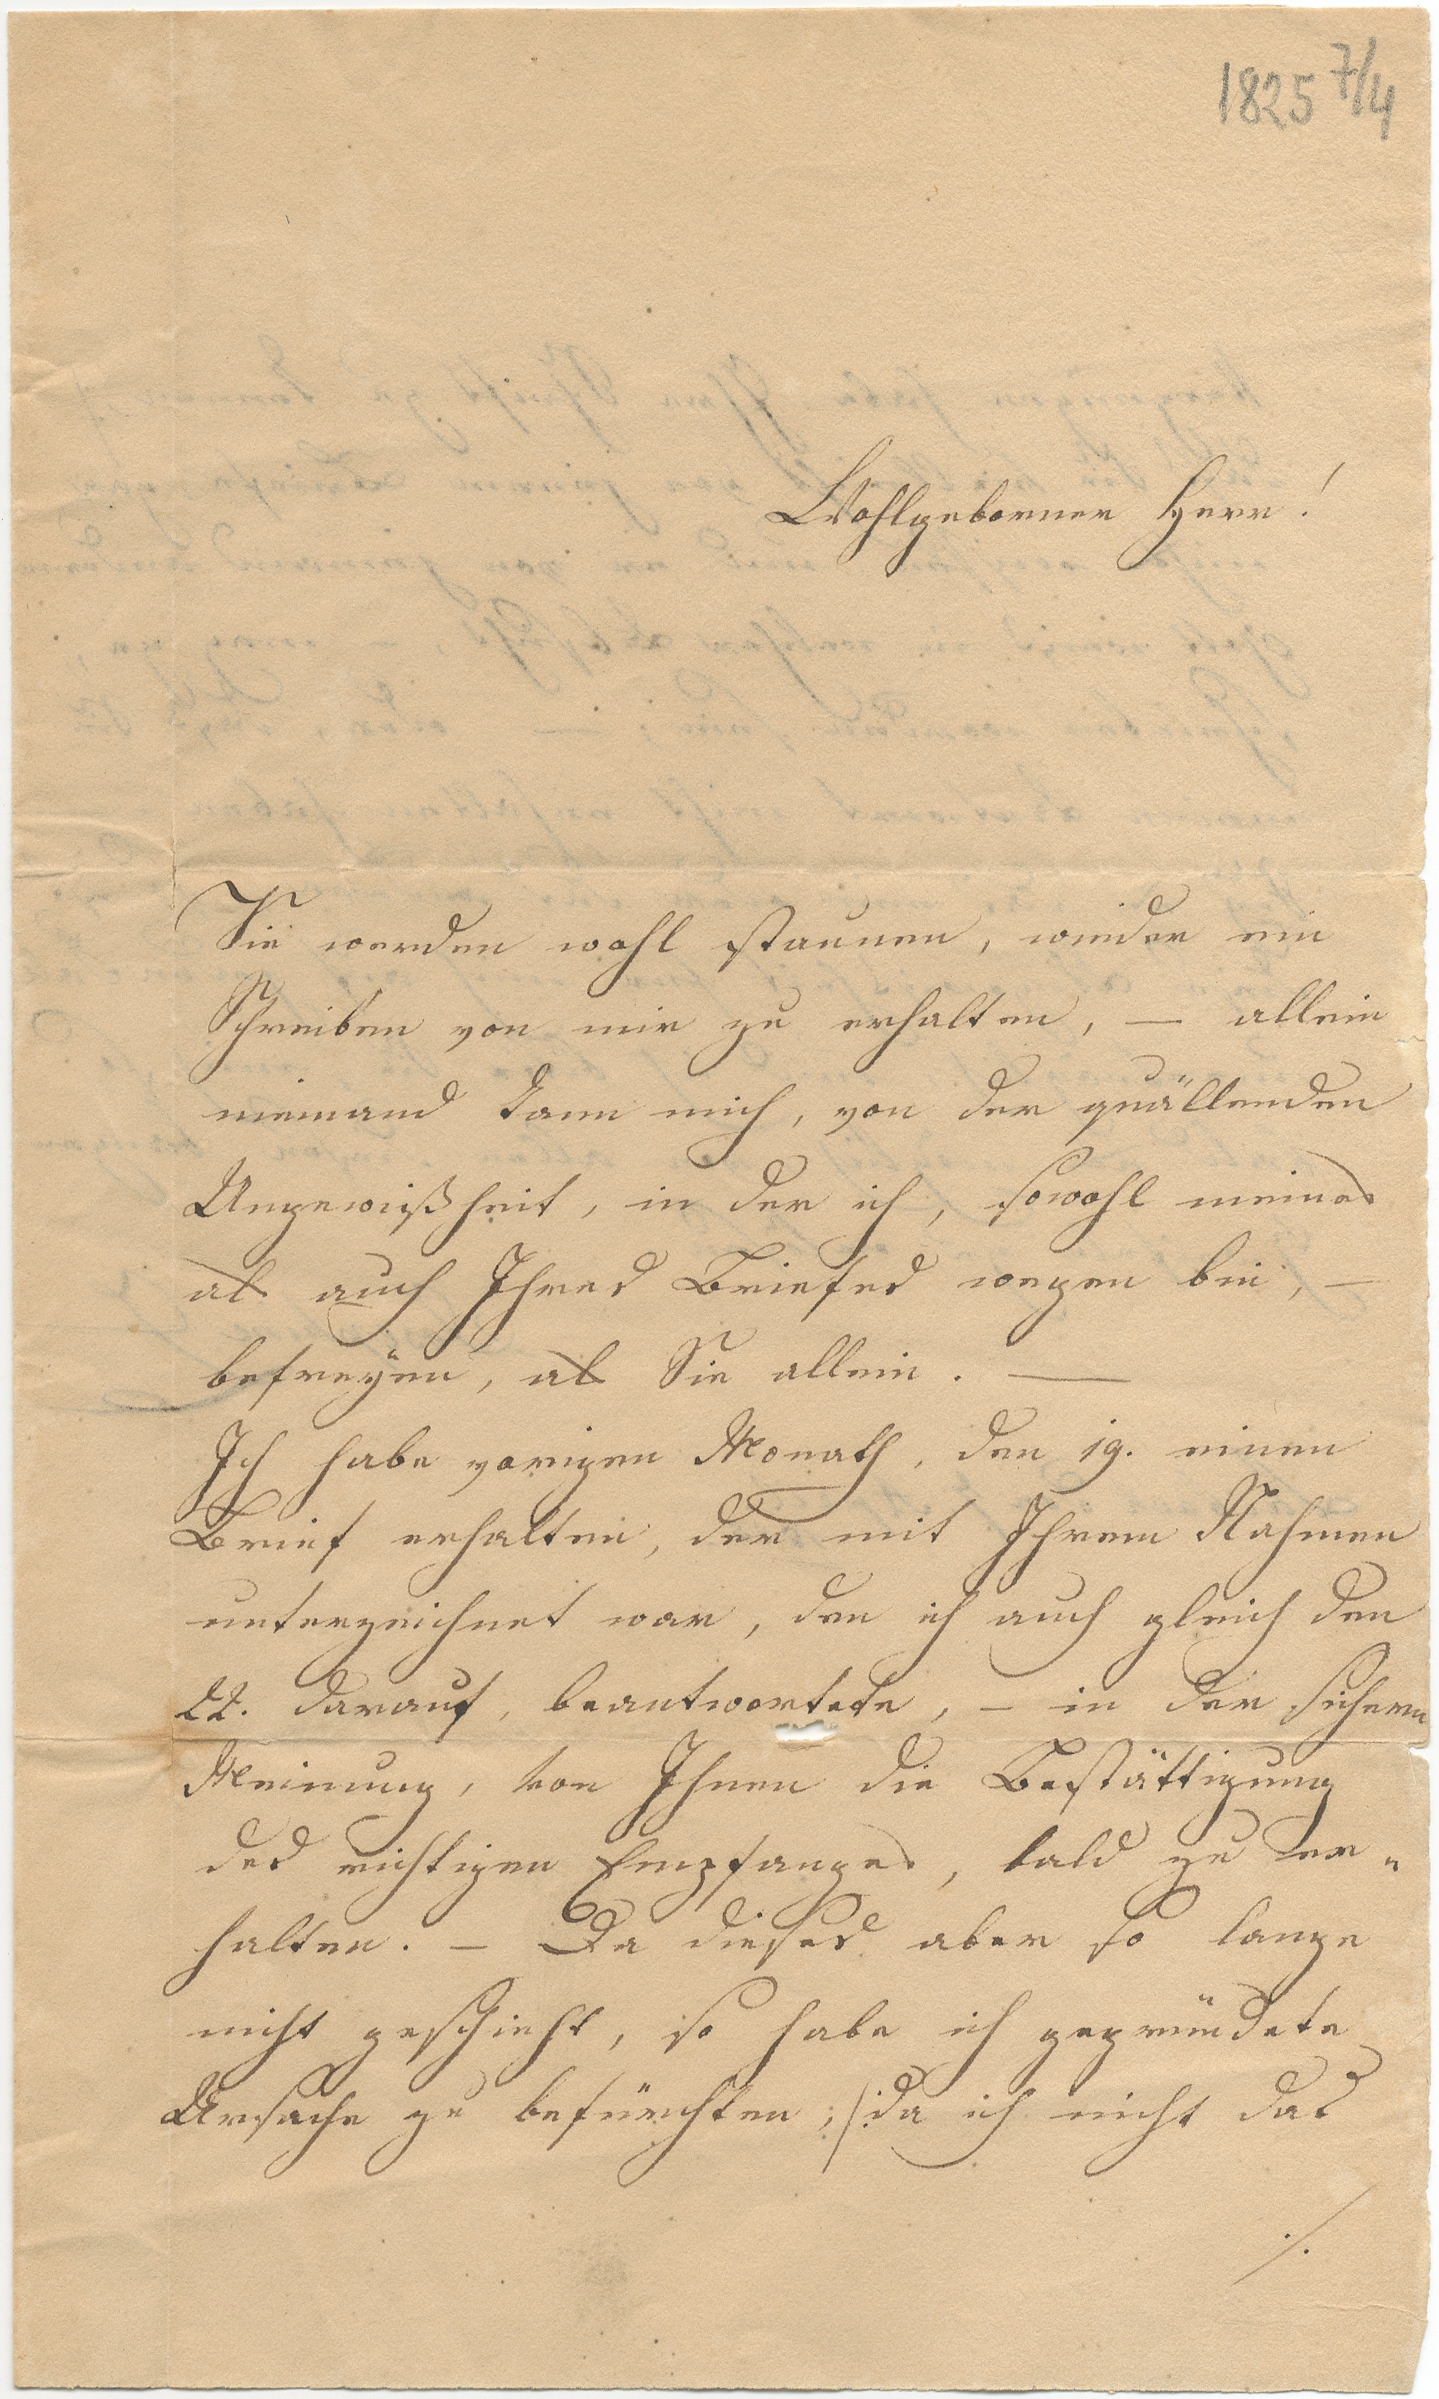 1825 7/4
Wohlgeborner Herr!
Sie werden wohl staunen, wieder ein
Schreiben von mir zu erhalten, — allein
niemand kann mich, von der quällenden
Ungewißheit, in der ich, sowohl meines
als auch Ihres Briefes wegen bin, —
befreyen, als Sie allein. —
Ich habe vorigen Monath, den 19. einen
Brief erhalten, der mit Ihrem Nahmen
unterzeichnet war, den ich auch gleich den
22. darauf, beantwortete, – in der sichern
Meinung, von Ihnen die Bestättigung
des richtigen Empfanges, bald zu er=
halten. – Da dieses aber so lange
nicht geschieht, so habe ich gegründete
Ursache zu befürchten, /:da ich nicht das
./.